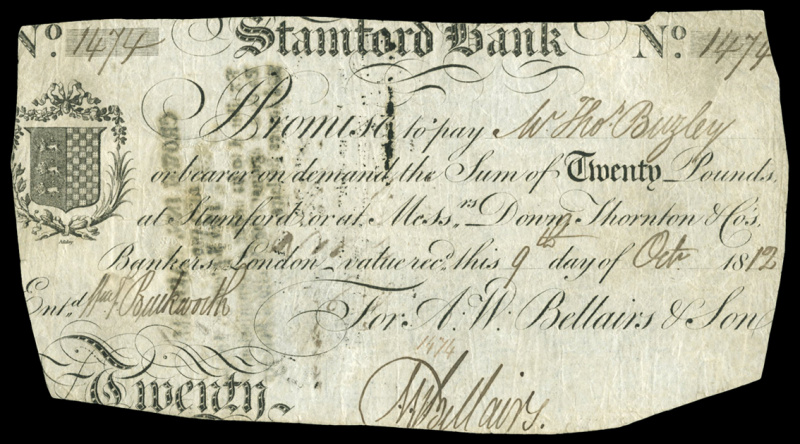 No. 1474 Stamford Bank No. 1474
I Promise to pay Mr. Thos. Buzley
or bearer on demand, the Sum of Twenty Pounds,
at Stamford, or at Messrs. Down, Thornton & Co's.
Bankers, London, value recd. this 9th day of Octr. 1812
Entd. Buckworth For A. W. Bellairs & Son
1474
Twenty A W Bellairs.